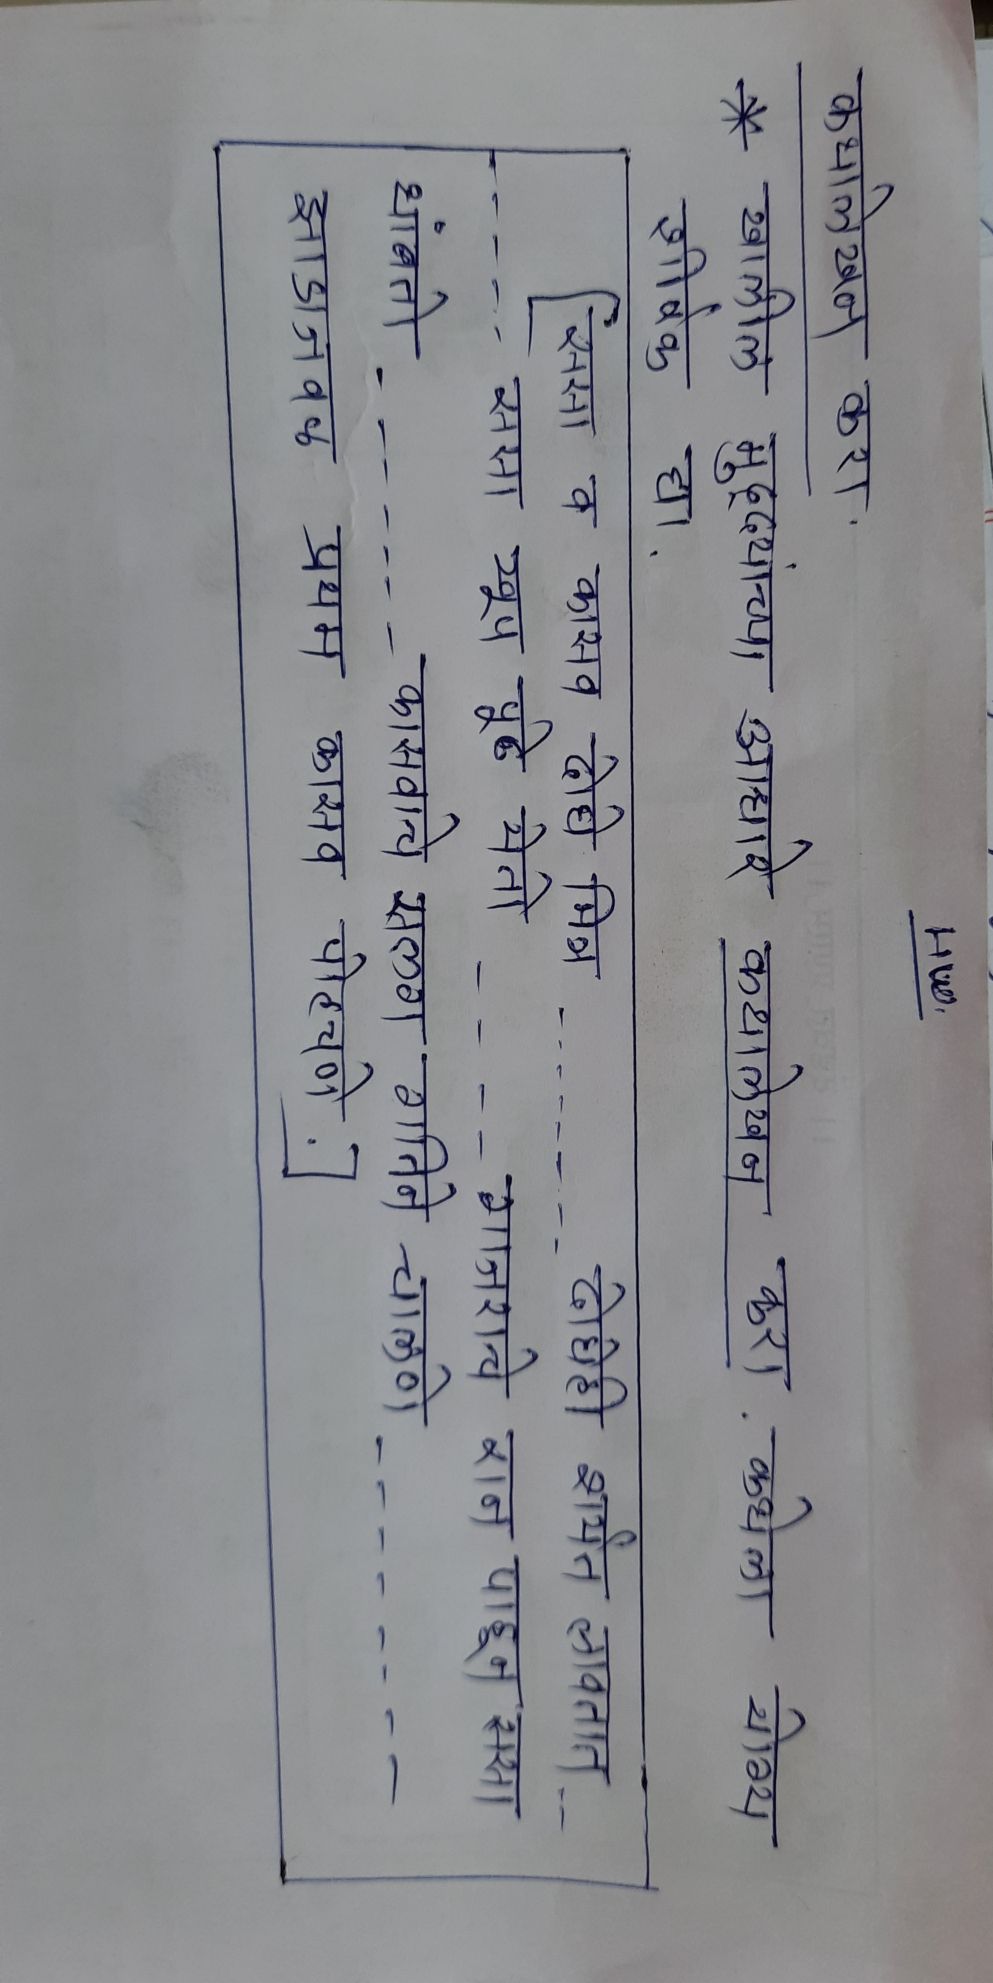 HW.
कथालेखन करा.
* खालील मुद्द्यांच्या आधारे कथालेखन करा. कथेला योग्य
शीर्षक द्या.
[ससा व कासव दोघे मित्र ------- दोघेही शर्यत लावतात --
----- ससा खूप पुढे येतो ----- गाजराचे रान पाहून ससा
थांबतो ------ कासवाचे सलग गतीने चालणे -------
झाडाजवळ प्रथम कासव पोहचणे.]